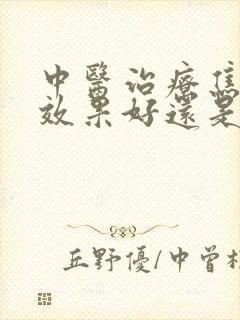 中醫治療焦
效果好還是
丘野優/中曾